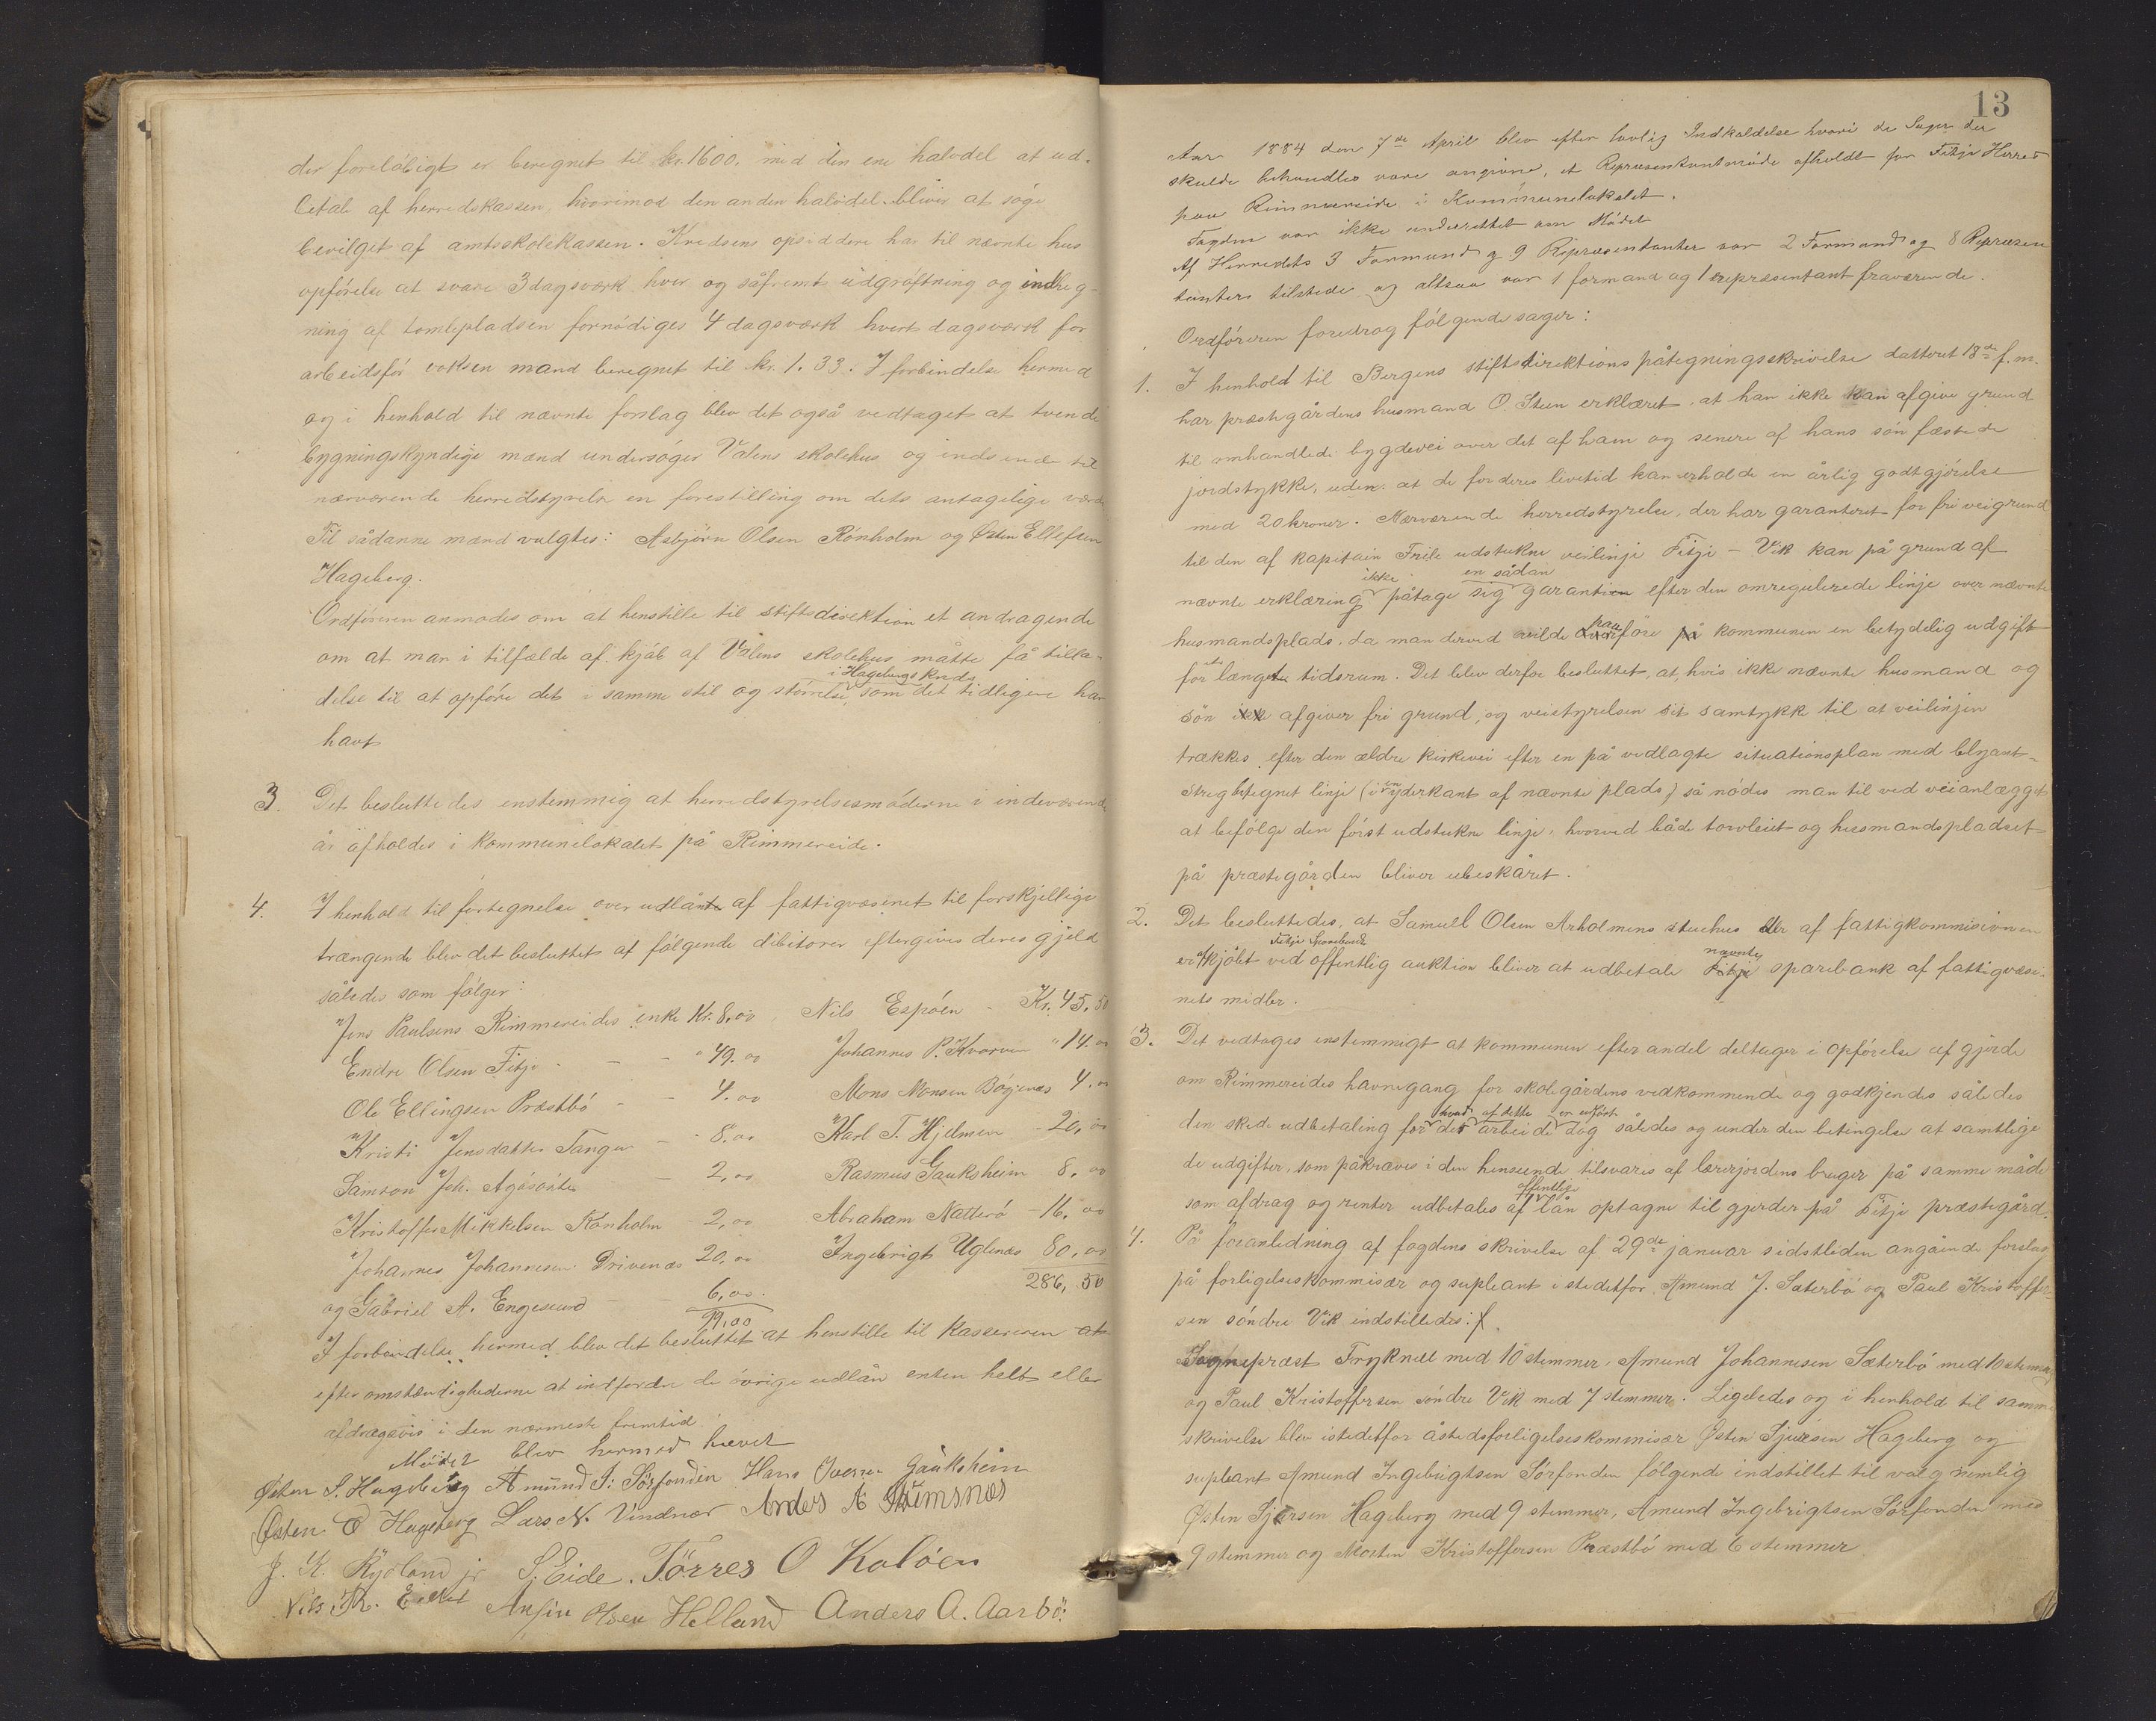 der foreløbigt er beregnet til kr. 1600. med den ene halvdel at ud-
betale af herredskassen, hvorimod den anden halvdel bliver at søge
bevilget af amtsskolekassen. Kredsens opsiddere har til nævnte hus
opførelse at svare 3 dagsværk hver og såfremt udgrøftning og indheg-
ning af tomtepladsen fornødiges 4 dagsværk hvert dagsværk for
arbeidsfør voksen mand beregnet til kr. 1.33. I forbindelse hermed
og i henhold til nævnte forslag blev det også vedtaget at tvende
bygningskyndige mænd undersøger Vålens skolehus og indsende til
nærværende herredstyrelse en forestilling om dets antagelige værdi
Til sådanne mænd valgtes: Asbjørn Olsen Rønholm og Østen Ellefsen
Hageberg.
Ordføreren anmodes om at henstille til stiftsdirektion et andragende
om at man i tilfælde af kjøb af Vålens skolehus måtte få tilla-
i Hagebergs Kreds
delse til at opføre det i samme stil og størrelse, som det tidligere har
havt
3. Det besluttedes enstemmig at herredstyrelsesmøderne i indeværende
år afholdes i Kommunelokalet på Rimmereide.
4. I henhold til fortegnelse over udlånte af fattigvæsenet til forskjellige
trængende blev det besluttet at følgende debitorer eftergives deres gjeld
således som følger:
Jens Paulsens Rimmereides enke Kr. 8,00 Nils Espøen - Kr. 45,50
Endre Olsen Fitje - - " 49.00 Johannes P. Kvarven " 14.00
Ole Ellingsen Præstbø - - 4.00 Mons Monsen Bøgenæs 4.00
Kristi Jensdatter Tangen - " 8.00 Karl T. Hjelmen - 20,00
Samson Joh. Agdsøster - 2,00 Rasmus Gauksheim 8,00
Kristoffer Mikkelsen Rønholm - 2,00 Abraham Natterø - 16,00
Johannes Johannesen Drivenæs 20,00 Ingebrigt Uglenæs 80,00
og Gabriel A. Engesund - - 6,00. 286,50
99,00
I forbindelse hermed blev det besluttet at henstille til Kassereren at
efter omstændighederne at indfordre de øvrige udlån enten helt eller
afdragsvis i den nærmeste fremtid
Mødet blev hermed hævet
Østen S. Hageberg Amund I: Sörfonden Hans Iversen Gauksheim
Østen E Hageberg Lars N. Vindnæs Anders A Strømsnæs
J. K. Rydland jr S. Eide. Törres O Kalöen
Nils Th. Eidet Ansjin Olsen Helland Anders A. Aarbö.
13
Aar 1884 den 7de April blev efter lovlig Indkaldelse hvori de Sager der
skulde behandles vare angivne, et Repræsentantmøde afholdt for Fitje Herred
paa Rimmereide i Kommunelokalet.
Fogden var ikke underrettet om Mødet
Af Herredets 3 Formænd og 9 Repræsentanter var 2 Formænd og 8 Repræsen
tanters tilstede og altsaa var 1 formand og 1 repræsentant fraværende.
Ordføreren foredrog følgende sager:
1. I henhold til Bergens stiftsdirektions påtegningsskrivelse dateret 18de f. m.
har præstegårdens husmand O. Steen erklæret, at han ikke kan afgive grund
til omhandlede bygdevei over det af ham og senere af hans søn fæstede
jordstykke, uden at de for deres livstid kan erholde en årlig godtgjørelse
med 20 kroner. Nærværende herredstyrelse, der har garanteret for fri veigrund
til den af kapitain Friele udstukne veilinje Fitje - Vik kan på grund af
ikke en sådan
nævnte erklæring påtage sig garantien efter den omregulerede linje over nævnte
paa
husmandsplads, da man derved vilde føre på kommunen en betydelig udgift
for længere tidsrum. Det blev derfor besluttet, at, hvis ikke nævnte husmand og
søn ikke afgiver fri grund, og veistyrelsen sit samtykke til at veilinjen
trækkes efter den ældre kirkevei efter en på vedlagte situationsplan med blyant-
streg betegnet linje (i en yderkant af nævnte plads) så nødes man til ved veianlægget
at befølge den først udstukne linje, hvorved både torvleiet og husmandspladset
på præstegården bliver ubeskåret.
2. Det besluttedes, at Samuel Olsen Arholmens stuehus der af fattigkommisionen
Fitje Sparebank nævnte
er kjøbt ved offentlig auktion bliver at udbetale Fitje sparebank af fattigvæse-
nets midler.
3. Det vedtoges enstemmigt at kommunen efter andel deltager i opførelse af gjerde
om Rimmereides havnegang for skolegårdens vedkommende og godkjendes således
hvad af dette er udført
den skede udbetaling for det arbeide dog således og under den betingelse at samtlige
de udgifter, som påkræves i den henseende tilsvares af lærerjordens bruger på samme måde
offentlige
som afdrag og renter udbetales af lån optagne til gjerder på Fitje præstegård.
4. På foranledning af fogdens skrivelse af 29de januar sidstleden angående forslag
på forligelseskommisær og supleant i stedetfor Amund J. Sæterbø og Paul Kristoffer-
sen søndre Vik indstilledes:
Sognepræst Fryknell med 10 stemmer, Amund Johannesen Sæterbø med 10 stemmer
og Paul Kristoffersen søndre Vik med 7 stemmer. Ligeledes og i henhold til samme
skrivelse blev istedetfor åstedsforligelseskommisær Østen Sjursen Hageberg og
supleant Amund Ingebrigtsen Sørfonden følgende indstillet til valg nemlig
Østen Sjursen Hageberg med 9 stemmer, Amund Ingebrigtsen Sørfonden med
9 stemmer og Morten Kristoffersen Præstbø med 6 stemmer